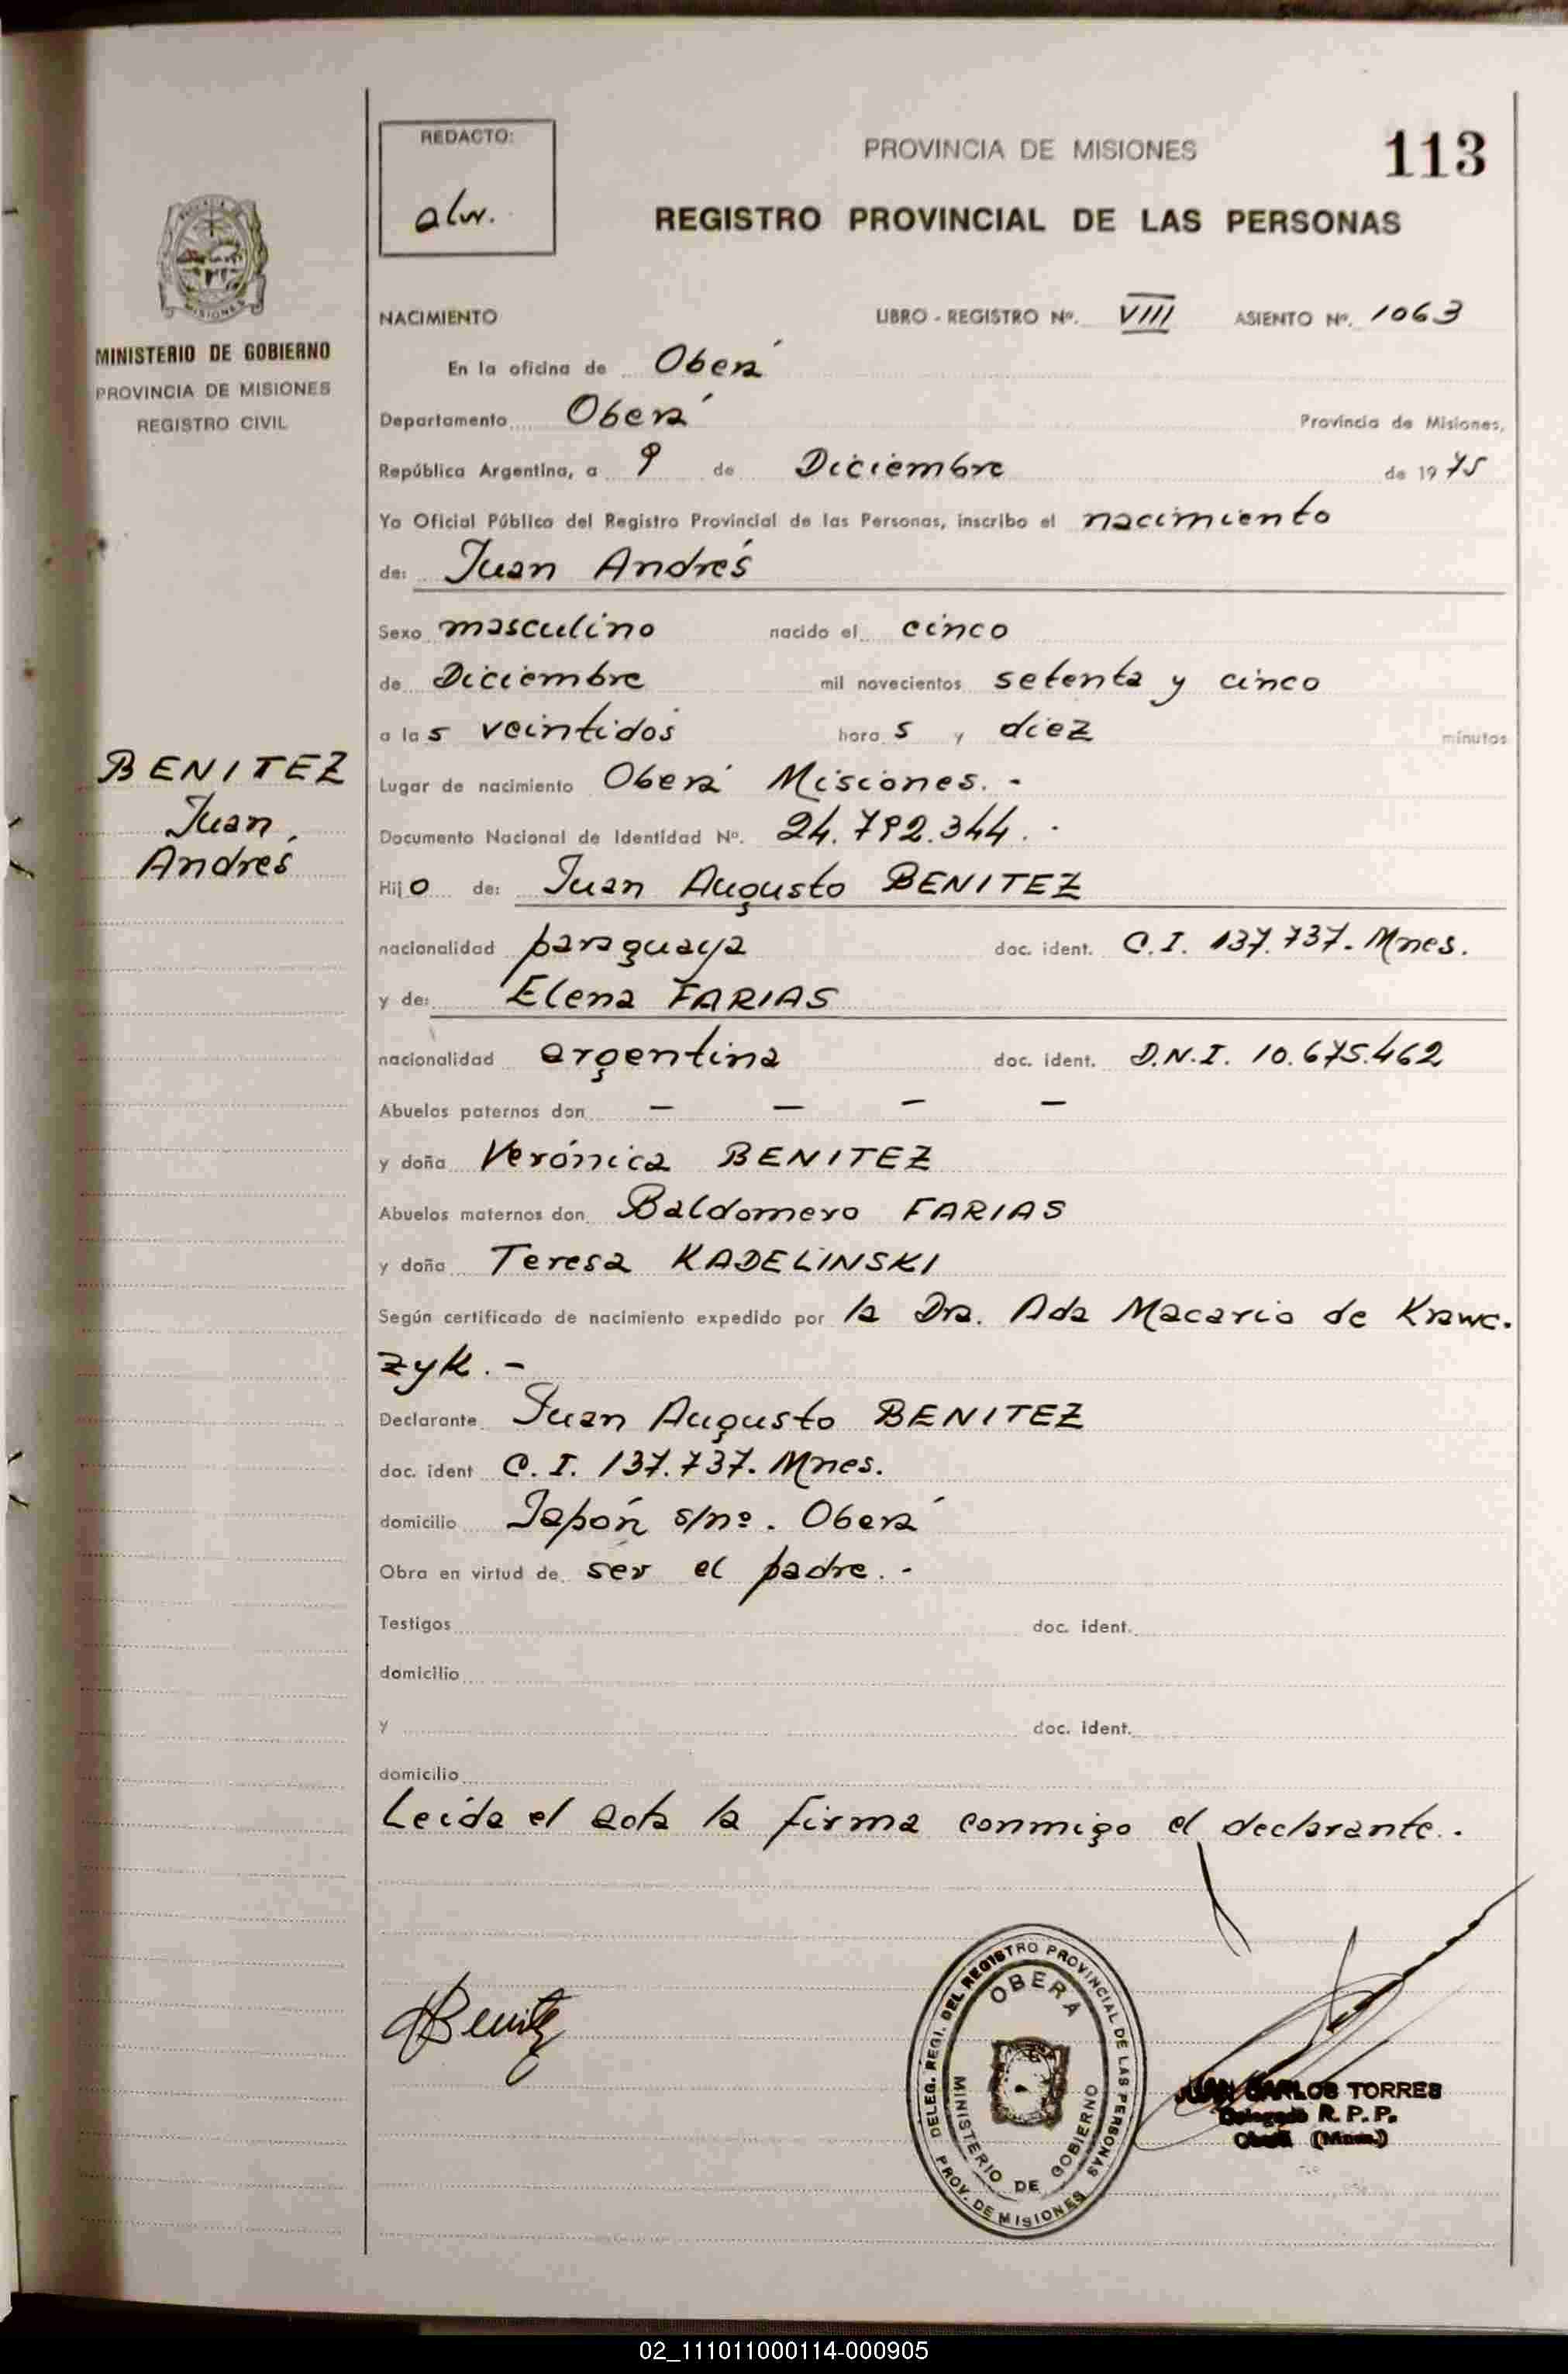 REDACTO:
alw.
PROVINCIA DE MISIONES
113
REGISTRO PROVINCIAL DE LAS PERSONAS
MISIONES
MINISTERIO DE GOBIERNO
PROVINCIA DE MISIONES
REGISTRO CIVIL
BENITEZ
Juan
Andrés
NACIMIENTO LIBRO - REGISTRO Nº. VIII ASIENTO Nº. 1063
En la oficina de Oberá
Departamento Oberá Provincia de Misiones,
República Argentina, a 9 de Diciembre de 1975
Yo Oficial Público del Registro Provincial de las Personas, inscribo el nacimiento
de: Juan Andrés
Sexo masculino nacido el cinco
de Diciembre mil novecientos setenta y cinco
a las veintidos horas y diez minutos
Lugar de nacimiento Oberá Misiones. -
Documento Nacional de Identidad Nº. 24.792.344. -
Hijo de: Juan Augusto BENITEZ
nacionalidad paraguaya doc. ident. C.I. 137.737. Mnes.
y de: Elena FARIAS
nacionalidad argentina doc. ident. D.N.I. 10.675.462
Abuelos paternos don — — — —
y doña Verónica BENITEZ
Abuelos maternos don Baldomero FARIAS
y doña Teresa KADELINSKI
Según certificado de nacimiento expedido por la Dra. Ada Macario de Krawc-
zyk. -
Declarante Juan Augusto BENITEZ
doc. ident C.I. 137.737. Mnes.
domicilio Japón s/nº. Oberá
Obra en virtud de ser el padre. -
Testigos doc. ident.
domicilio
y doc. ident.
domicilio
Leída el acta la firma conmigo el declarante. -
JBenitez
DELEG. REGI. DEL REGISTRO PROVINCIAL DE LAS PERSONAS
OBERA
MINISTERIO DE GOBIERNO
PROV. DE MISIONES
JUAN CARLOS TORRES
Delegado R. P. P.
Oberá (Mnes.)
02_111011000114-000905